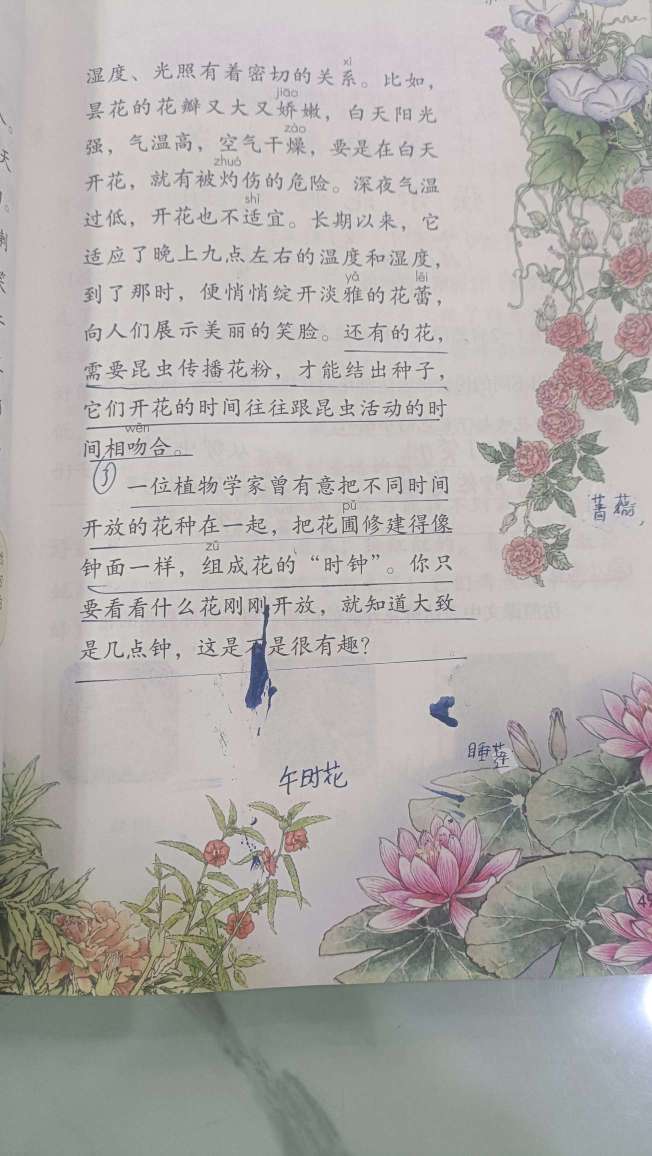 xì
湿度、光照有着密切的关系。比如，
jiāo
昙花的花瓣又大又娇嫩，白天阳光
zào
强，气温高，空气干燥，要是在白天
zhuó
开花，就有被灼伤的危险。深夜气温
shì
过低，开花也不适宜。长期以来，它
适应了晚上九点左右的温度和湿度，
yǎ lěi
到了那时，便悄悄绽开淡雅的花蕾，
向人们展示美丽的笑脸。还有的花，
需要昆虫传播花粉，才能结出种子，
它们开花的时间往往跟昆虫活动的时
wěn
间相吻合。
③
一位植物学家曾有意把不同时间
pǔ
开放的花种在一起，把花圃修建得像
zǔ
钟面一样，组成花的“时钟”。你只
要看看什么花刚刚开放，就知道大致
是几点钟，这是不是很有趣？
睡莲
午时花